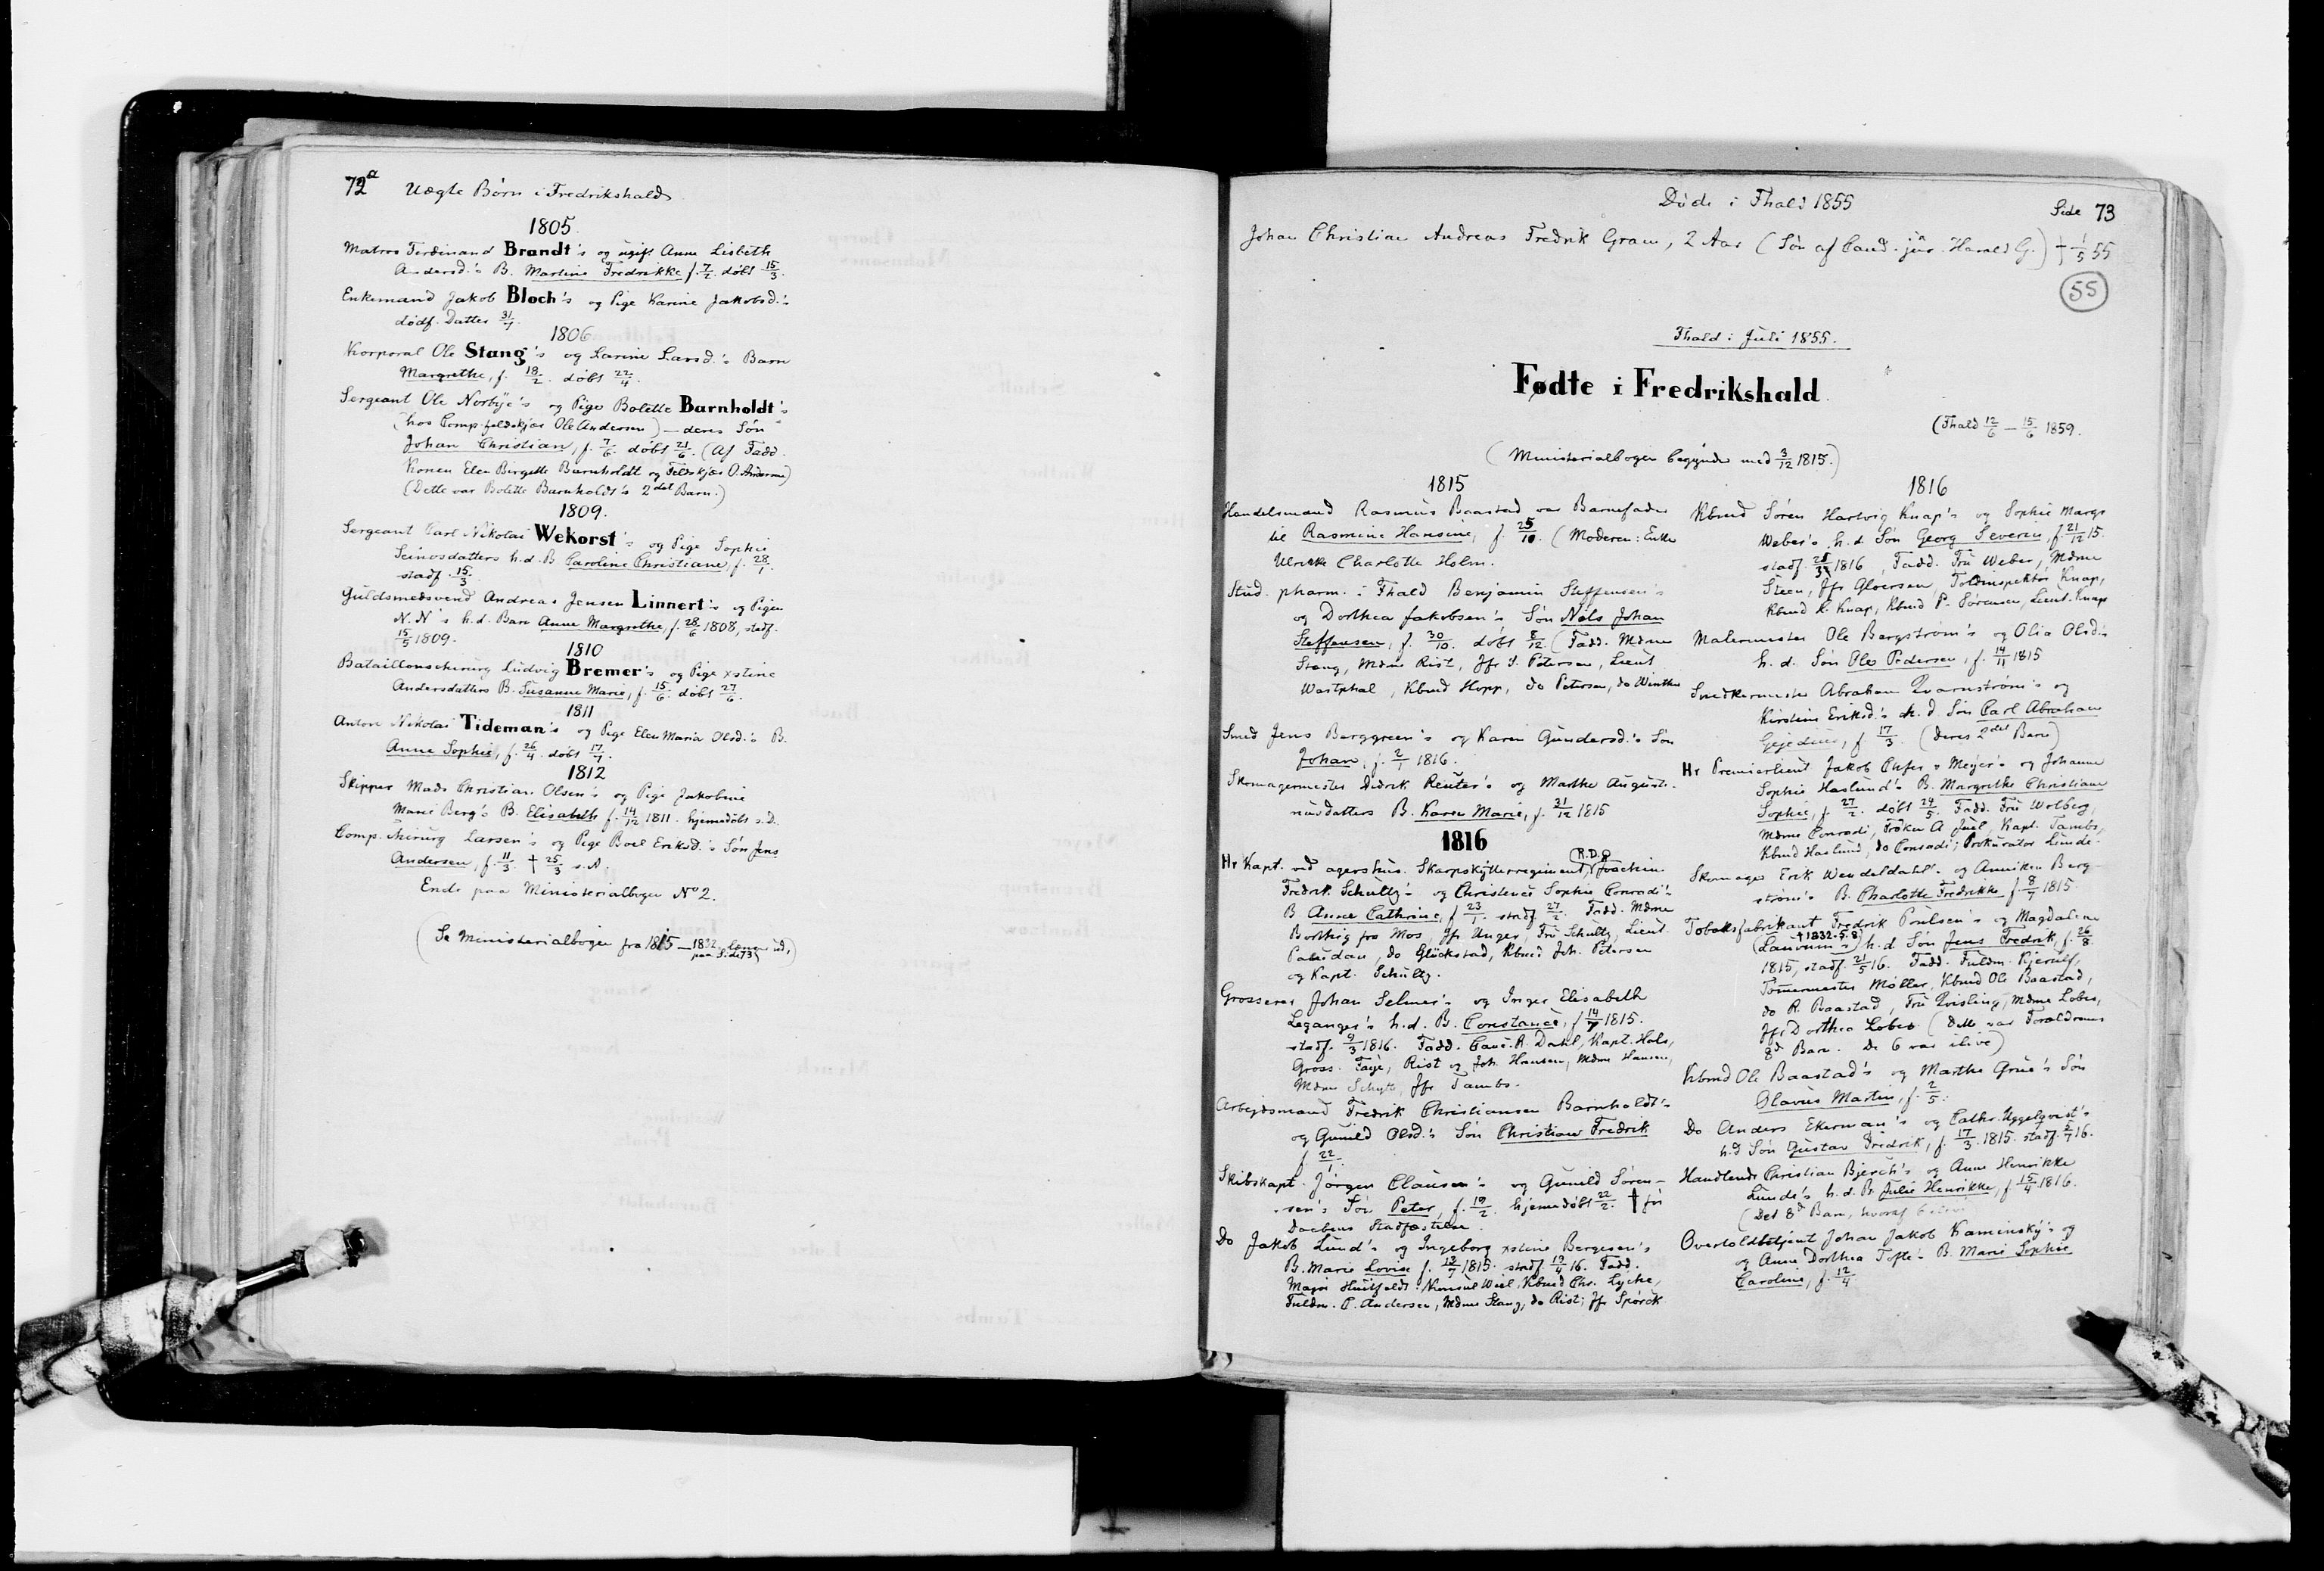 72a Uægte Børn i Fredrikshald
1805.
Matros Ferdinand Brandt's og ugift Anne Lisbeth
Andersd.'s B. Martine Fredrikke f. 7/2. døbt 15/3.
Enkemand Jakob Bloch's og Pige Karine Jakobsd.'s
dødf. Datter 31/7.
1806
Korporal Ole Stang's og Larine Larsd.'s Barn
Margrethe, f. 18/2. døbt 22/4.
Sergeant Ole Norbye's og Pige Bolette Barnholdt's
(hos Comp.feldskjær Ole Andersen) - deres Søn
Johan Christian, f. 7/6. døbt 21/6. (Af Fadd.
Konen Elen Birgette Barnholdt og Feldskjær O. Andersen)
(Dette var Bolette Barnholdt's 2det Barn.)
1809.
Sergeant Carl Nikolai Wekorst's og Pige Sophie
Seinosdatters h.d. B Caroline Christiane, f. 28/1.
stadf. 15/3.
Guldsmedsvend Andreas Jensen Linnert's og Pigen
N. N's h.d. Barn Anne Margrethe, f. 28/6 1808, stadf.
15/5 1809.
1810
Bataillonschirurg Ludvig Bremer's og Pige xstine
Andersdatters B. Susanne Marie, f. 15/6. døbt 27/6.
1811
Anton Nikolai Tideman's og Pige Elen Maria Olsd.'s B.
Anne Sophie, f. 26/4. døbt 17/7.
1812
Skipper Mads Christian Olsen's og Pige Jakobine
Marie Berg's B. Elisabeth f. 14/12 1811. hjemmedøbt s.D.
Comp.chirurg Larsen's og Pige Boel Eriksd.'s Søn Jens
Andersen, f. 11/3. † 25/3 s.A.
Ende paa Ministerialbogen No 2.
(Se Ministerialbogen fra 1815-1832, længer ud,
paa Side 73)
Døde i Fhald 1855
Side 73
Johan Christian Andreas Fredrik Gram, 2 Aar (Søn af Cand. jur. Harald G.) † 1/5 55
55
Fhald i Juli 1855.
Fødte i Fredrikshald
(Fhald 12/6 - 15/6 1859.
(Ministerialbogen begynder med 3/12 1815.)
1815
Handelsmand Rasmus Baastad var Barnefader
til Rasmine Hansine, f. 25/10. (Moderen: Enke
Ulrikke Charlotte Holm.
Stud. pharm. i Fhald Benjamin Steffensen's
og Dorthea Jakobsen's Søn Nils Johan
Steffensen, f. 30/10. døbt 8/12 (Fadd. Mdme
Stang, Mdme Rist, Jfr S. Petersen, Lieut
Wastphal, Kbmd Hopp, do Petersen, do Winther
Smed Jens Berggreen's og Karen Gundersd.'s Søn
Johan, f. 2/1 1816.
Skomagermester Didrik Reuter's og Marthe Augusti-
nusdatters B. Karen Marie, f. 31/12 1815
1816
Hr Kapt. ved agershus. Skarpskytterregiment, (R.D.) Joachim
Fredrik Schultz's og Christence Sophie Conradi's
B. Anne Cathrine, f 23/1. stadf. 27/2. Fadd. Mdme
Borthig fra Mos, Jfr Unger, Fru Schultz, Lieut.
Paludan, do Glückstad, Kbmd Joh. Petersen
og Kapt. Schultz.
Grosserer Johan Selmer's og Inger Elisabeth
Leganger's h.d. B. Constance, f 14/7 1815.
stadf. 9/3 1816. Fadd. R. Dahl, Kapt. Hals,
Gross. Faye, Rist og Joh. Hansen, Mdme Hansen,
Mdme Schytt, Jfr Tambs.
Arbejdsmand Fredrik Christiansen Barnholdt's
og Gunild Olsd.'s Søn Christian Fredrik
f. 22/1.
Skibskapt. Jørgen Clausen's og Gunild Søren-
sen's Søn Peter, f. 19/2. hjemmedøbt 22/2. † før
Daabens Stadfæstelse.
Do Jakob Lund's og Ingeborg xstine Bergesen's
B. Marie Lovise f. 13/7 1815. stadf. 19/4 16. Fadd.
Major Huitfeldt, Konsul Wiel, Kbmd Chr. Lyche,
Fuldm. C. Andersen, Mdme Stang, do Rist, Jfr Spørck
1816
Kbmd Søren Hartvig Knap's og Sophie Margr
Weber's h.d Søn Georg Severin, f. 21/12 15.
stadf. 25/3 1816, Fadd. Fru Weber, Mdme
Steen, Jfr Gloersen, Toldinspektør Knap,
Kbmd K. Knap, Kbmd P. Sørensen, Lieut. Knap
Malermester Ole Bergstrøm's og Olia Olsd.'s
h.d. Søn Ole Pedersen, f. 14/11 1815
Snedkermester Abraham Qvarnstrøm's og
Kirstine Eriksd.'s h.d Søn Carl Abraham
f. 17/3. (deres 2det Barn)
Hr Premierlieut Jakob v Meyer's og Johanne
Sophie Haslund's B. Margrethe Christiane
Sophie, f. 27/2. døbt 24/5. Fadd. Fru Wolberg,
Mdme Conradi, Frøken A Juel, Kapt. Tambs,
Kbmd Haslund, do Conradi, Prokurator Lunde.
Skomager Erik Wendeldahl's og Anniken Berg-
strøm's B. Charlotte Fredrikke f. 8/7 1815
Tobaksfabrikant Fredrik Poulsen's og Magdalene
(Lauvum's † 1832-5.8) h.d Søn Jens Fredrik, f. 26/8.
1815, stadf. 21/5 16. Fadd. Fuldm. Kjerulf,
Tømmermester Møller, Kbmd Ole Baastad,
do R. Baastad, Fru Qvisling, Mdme Lobes,
Jfr Dorthea Lobes. (Dette var Forældrenes
8d Barn. De 6 var ilive)
Kbmd Ole Baastad's og Marthe Grue's Søn
Olavus Martin, f. 2/5.
Do Anders Ekerman's og Cathr. Uggelqvist's
h.d Søn Gustav Fredrik, f. 17/3. 1815. stadf. 2/7 16.
Handlende Christian Bjerch's og Anne Henrikke
Lunde's h.d. B. Julie Henrikke, f. 15/4 1816.
(Det 8d Barn, hvoraf 6 ilive
Overtoldbetjent Johan Jakob Kaminsky's og
og Anne Dorthea Tofte's B. Marie Sophie
Caroline, f. 12/4